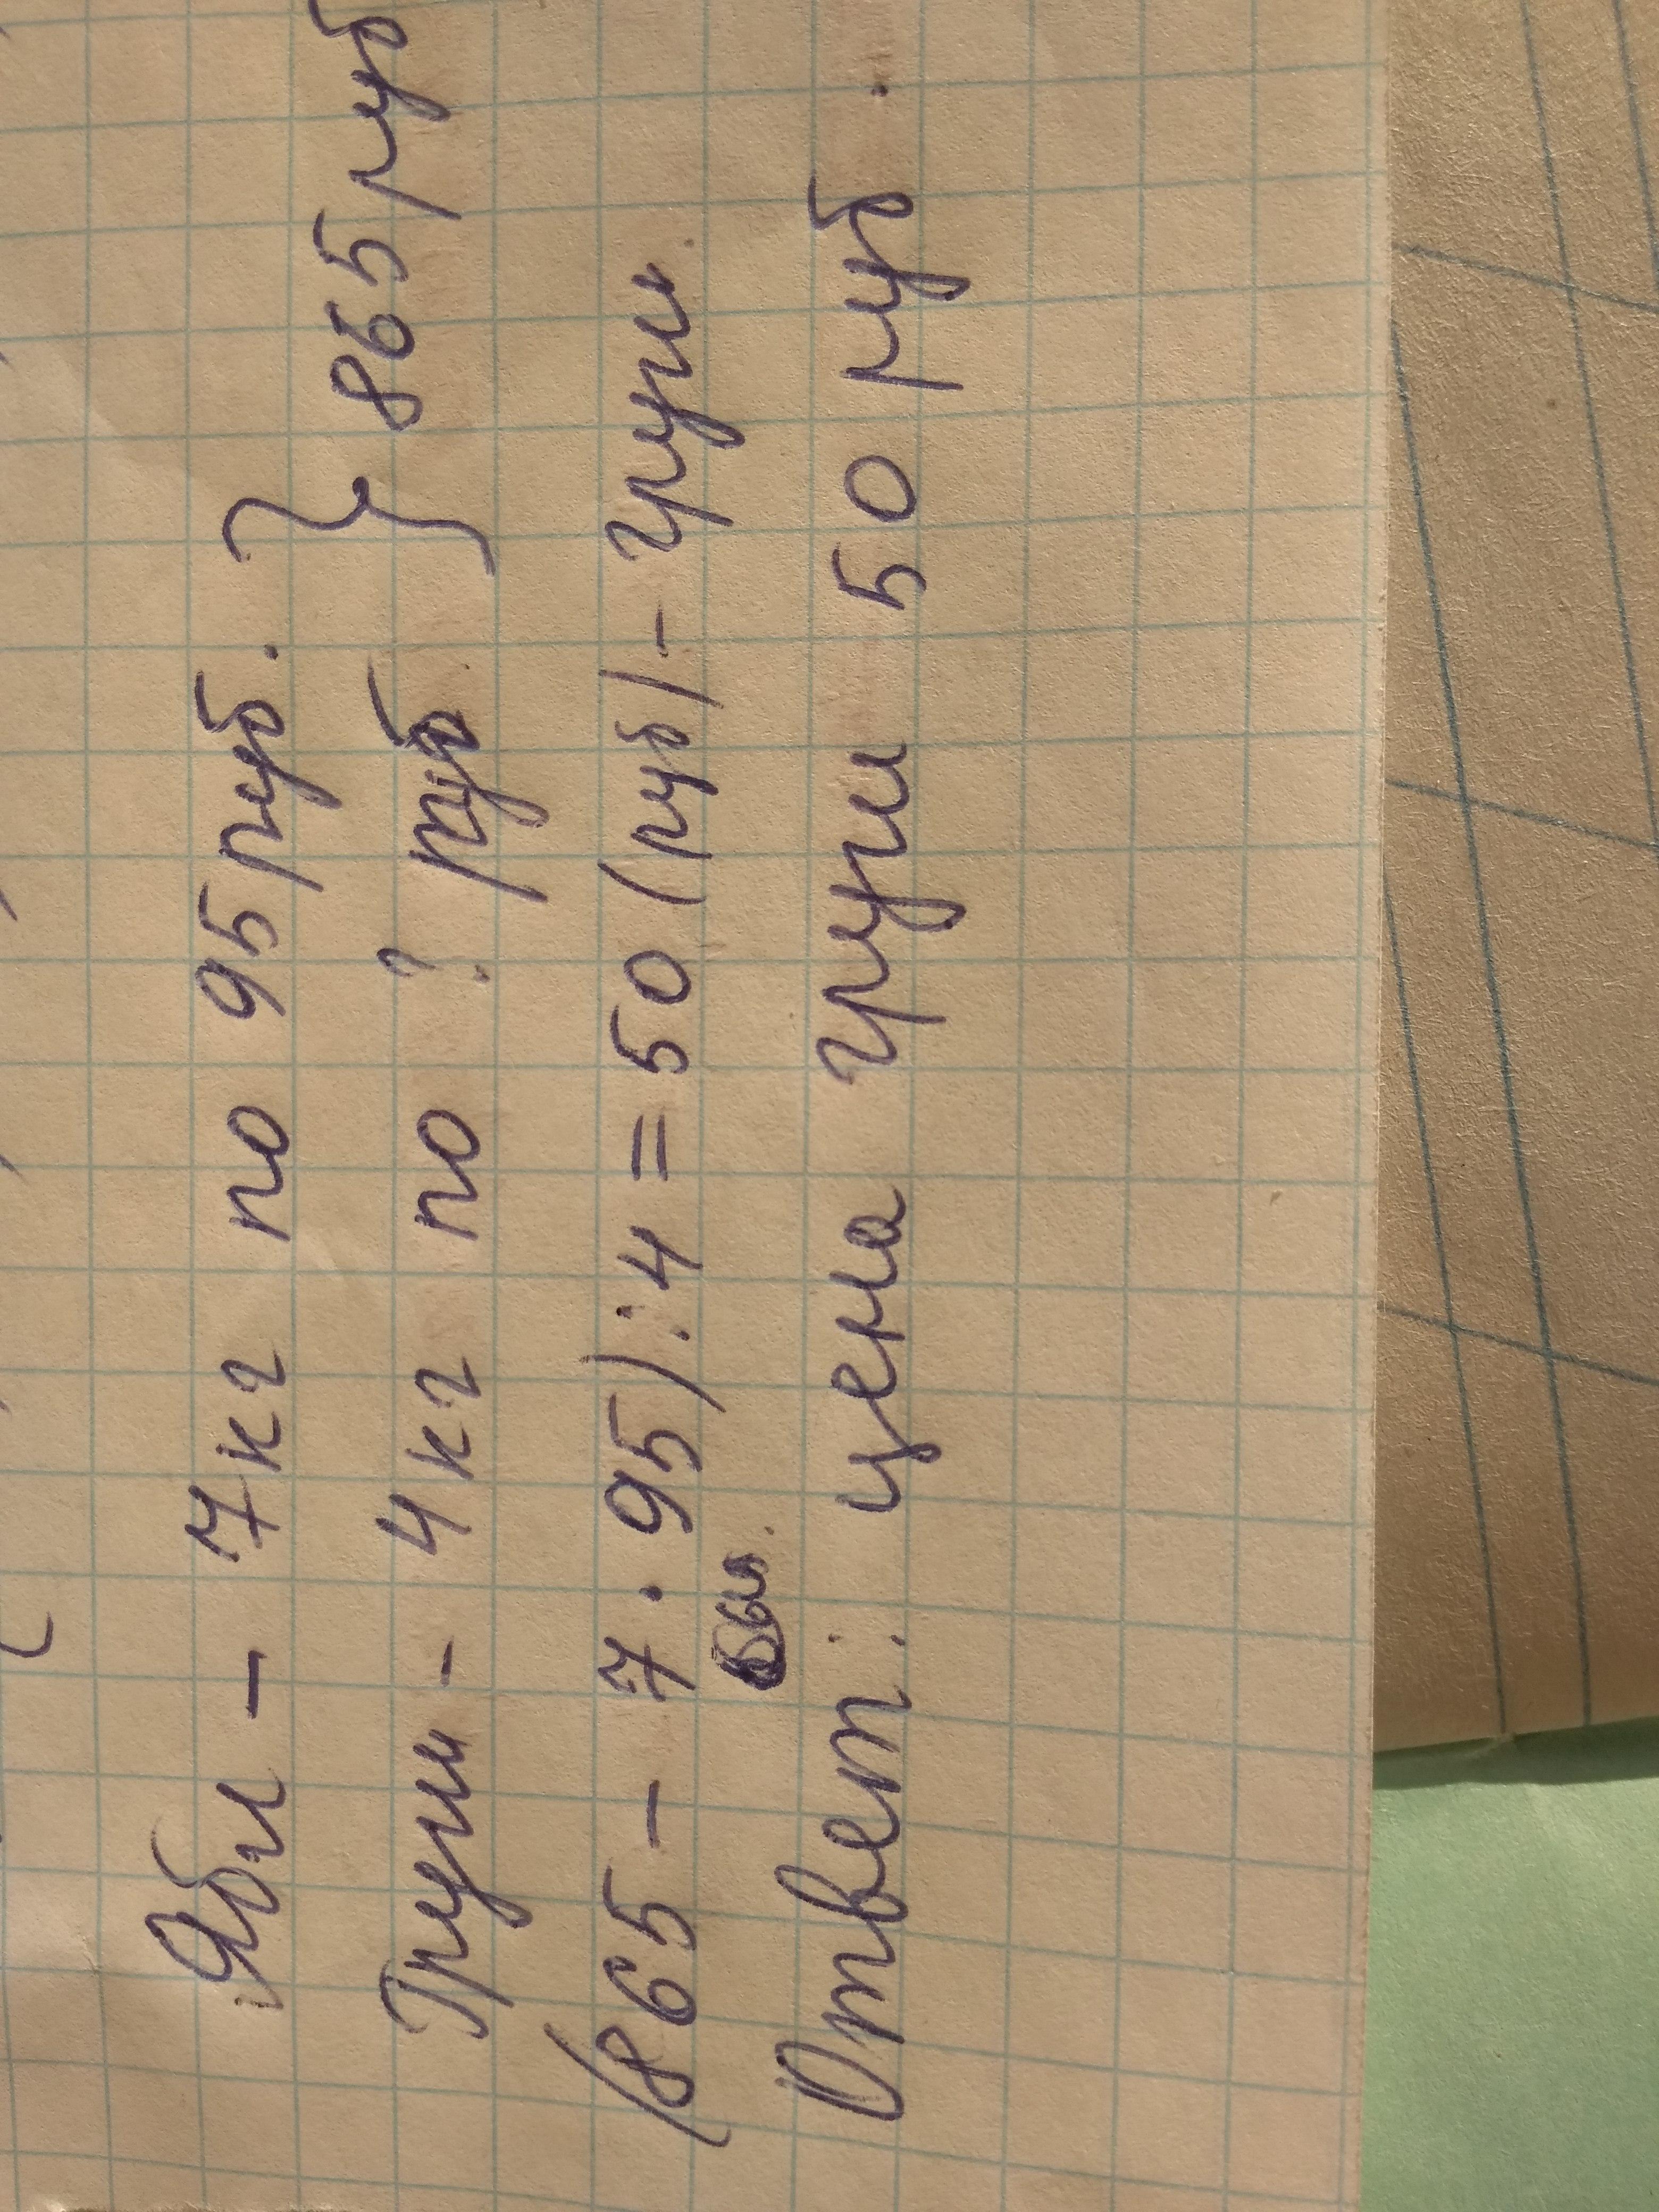 Ябл - 7кг по 95 руб. } 865 руб
Груш - 4кг по ? руб
(865 - 7 · 95) : 4 = 50 (руб) - груш
Ответ: цена груш 50 руб.